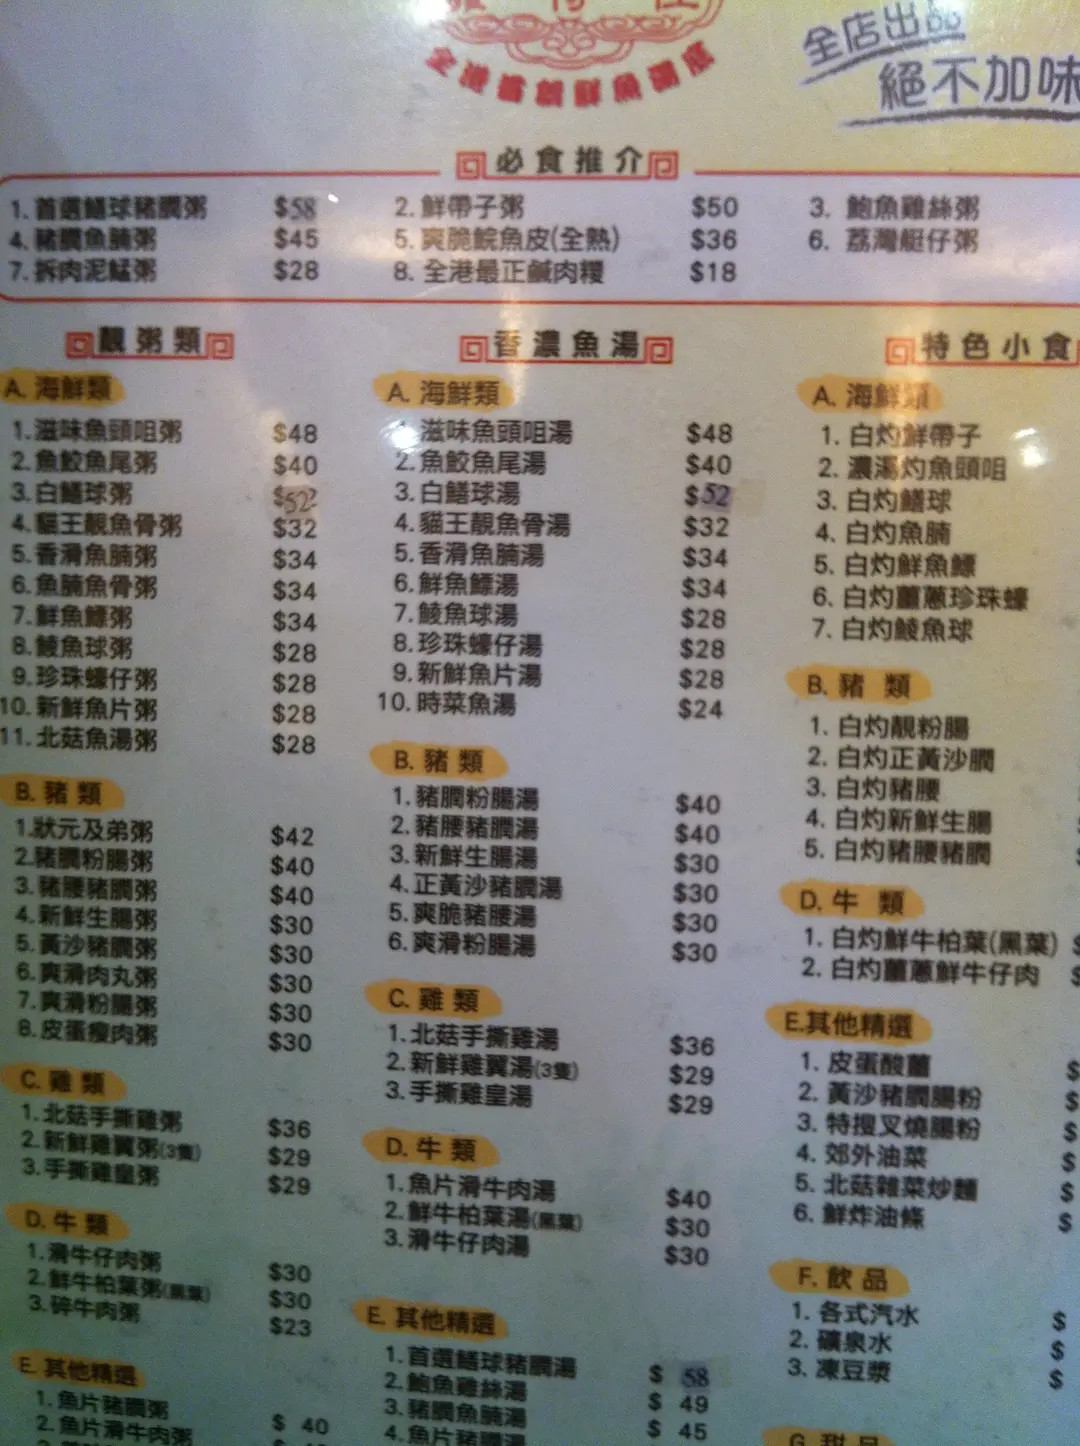 全港首創鮮魚湯底
全店出品
絕不加味
必食推介
1. 首選鱔球豬膶粥 $58
2. 鮮帶子粥 $50
3. 鮑魚雞絲粥
4. 豬膶魚腩粥 $45
5. 爽脆鯇魚皮(全熟) $36
6. 荔灣艇仔粥
7. 拆肉泥鯭粥 $28
8. 全港最正鹹肉糭 $18
靚粥類
A. 海鮮類
1. 滋味魚頭咀粥 $48
2. 魚鮫魚尾粥 $40
3. 白鱔球粥 $52
4. 貓王靚魚骨粥 $32
5. 香滑魚腩粥 $34
6. 魚腩魚骨粥 $34
7. 鮮魚鰾粥 $34
8. 鯪魚球粥 $28
9. 珍珠蠔仔粥 $28
10. 新鮮魚片粥 $28
11. 北菇魚湯粥 $28
B. 豬類
1. 狀元及弟粥 $42
2. 豬膶粉腸粥 $40
3. 豬腰豬膶粥 $40
4. 新鮮生腸粥 $30
5. 黃沙豬膶粥 $30
6. 爽滑肉丸粥 $30
7. 爽滑粉腸粥 $30
8. 皮蛋瘦肉粥 $30
C. 雞類
1. 北菇手撕雞粥 $36
2. 新鮮雞翼粥(3隻) $29
3. 手撕雞皇粥 $29
D. 牛類
1. 滑牛仔肉粥 $30
2. 鮮牛柏葉粥(黑葉) $30
3. 碎牛肉粥 $23
E. 其他精選
1. 魚片豬膶粥 $ 40
2. 魚片滑牛肉粥
香濃魚湯
A. 海鮮類
1. 滋味魚頭咀湯 $48
2. 魚鮫魚尾湯 $40
3. 白鱔球湯 $52
4. 貓王靚魚骨湯 $32
5. 香滑魚腩湯 $34
6. 鮮魚鰾湯 $34
7. 鯪魚球湯 $28
8. 珍珠蠔仔湯 $28
9. 新鮮魚片湯 $28
10. 時菜魚湯 $24
B. 豬類
1. 豬膶粉腸湯 $40
2. 豬腰豬膶湯 $40
3. 新鮮生腸湯 $30
4. 正黃沙豬膶湯 $30
5. 爽脆豬腰湯 $30
6. 爽滑粉腸湯 $30
C. 雞類
1. 北菇手撕雞湯 $36
2. 新鮮雞翼湯(3隻) $29
3. 手撕雞皇湯 $29
D. 牛類
1. 魚片滑牛肉湯 $40
2. 鮮牛柏葉湯(黑葉) $30
3. 滑牛仔肉湯 $30
E. 其他精選
1. 首選鱔球豬膶湯 $ 58
2. 鮑魚雞絲湯 $ 49
3. 豬膶魚腩湯 $ 45
4. 魚片豬膶湯
特色小食
A. 海鮮類
1. 白灼鮮帶子
2. 濃湯灼魚頭咀
3. 白灼鱔球
4. 白灼魚腩
5. 白灼鮮魚鰾
6. 白灼薑蔥珍珠蠔
7. 白灼鯪魚球
B. 豬類
1. 白灼靚粉腸
2. 白灼正黃沙膶
3. 白灼豬腰
4. 白灼新鮮生腸
5. 白灼豬腰豬膶
D. 牛類
1. 白灼鮮牛柏葉(黑葉) $
2. 白灼薑蔥鮮牛仔肉 $
E.其他精選
1. 皮蛋酸薑 $
2. 黃沙豬膶腸粉 $
3. 特搜叉燒腸粉 $
4. 郊外油菜 $
5. 北菇雜菜炒麵 $
6. 鮮炸油條 $
F. 飲品
1. 各式汽水 $
2. 礦泉水 $
3. 凍豆漿 $
G. 甜品